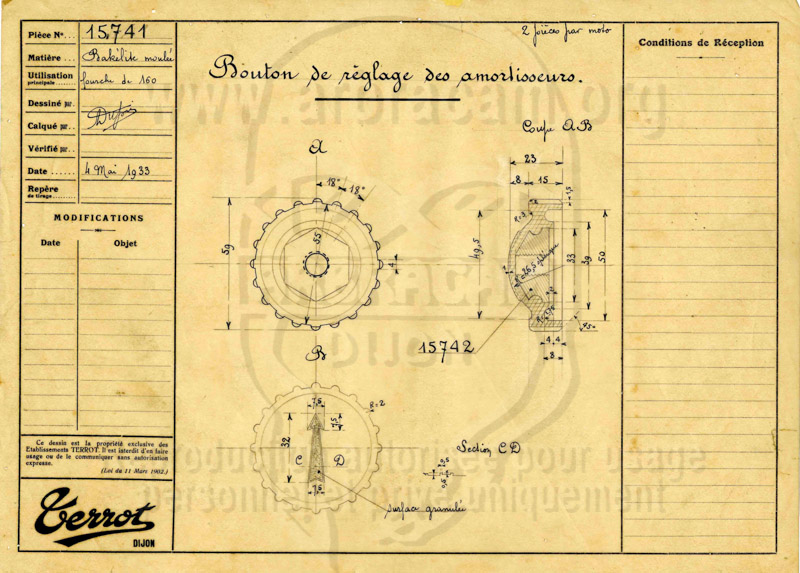 Pièce No... 15.741
Matière ... Bakélite moulée
Utilisation principale ........ fourche de 160
Dessiné par.
Calqué par..
Vérifié par..
Date ...... 4 Mai 1933
Repère de tirage........
MODIFICATIONS
Date Objet
Ce dessin est la propriété exclusive des
Etablissements TERROT. Il est interdit d'en faire
usage ou de le communiquer sans autorisation
expresse.
(Loi du 11 Mars 1902.)
Terrot
DIJON
2 pièces par moto
Bouton de règlage des amortisseurs.
Conditions de Réception
Coupe AB
A
18° 18°
59
55
4
B
23
8 15
1,5
R=3
49,5
33
39
50
45°
4,4
8
15742
7,5
R=2
7,5
32
C D
7,5
surface granulée
Section CD
0,5
0,5
www.aroracam.org
DIJON
personnel et privé uniquement